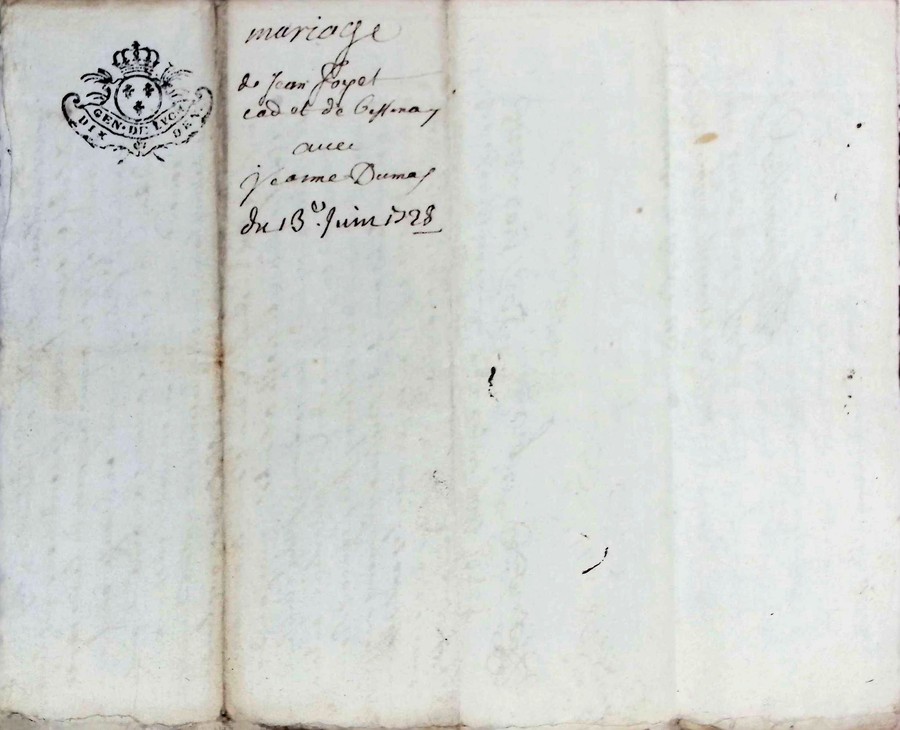 GEN. DE LYON
DIX DEN
mariage
de Jean
cadet de
avec
jeanne Dumas
du 13e. Juin 1728